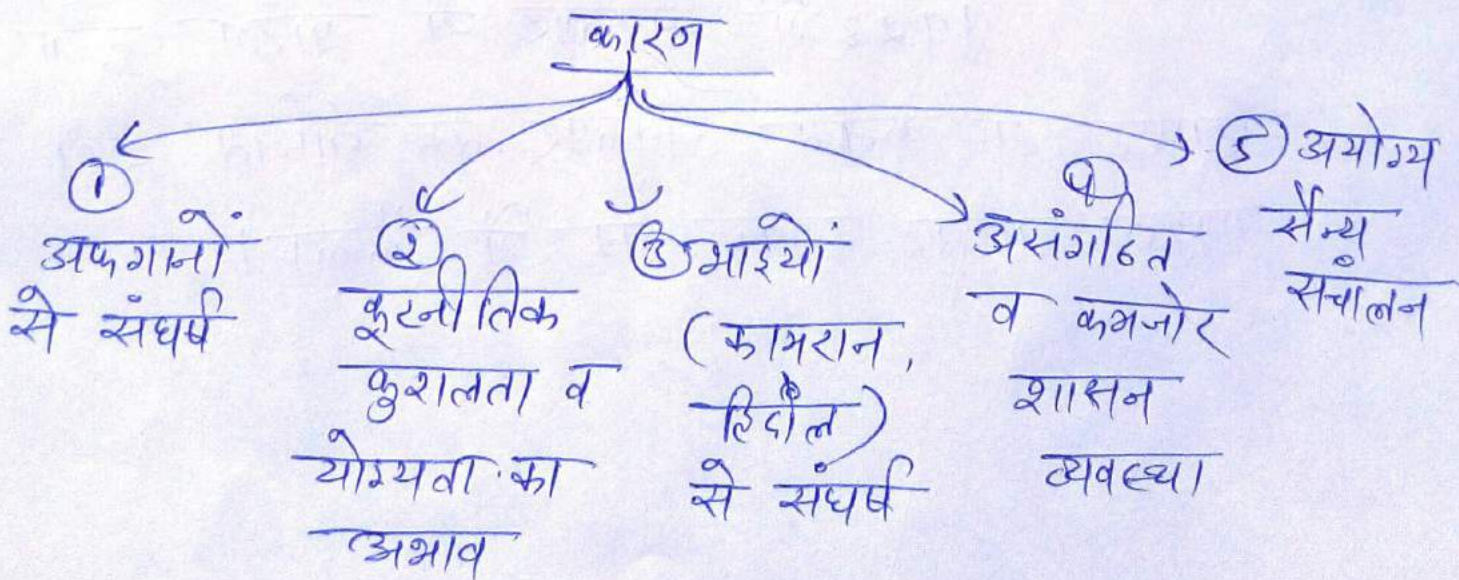 कारण
①
अफगानों
से संघर्ष
②
कूटनीतिक
कुशलता व
योग्यता का
अभाव
③ भाईयों
(कामरान,
हिंदाल)
से संघर्ष
④
असंगठित
व कमजोर
शासन
व्यवस्था
⑤ अयोग्य
सैन्य
संचालन